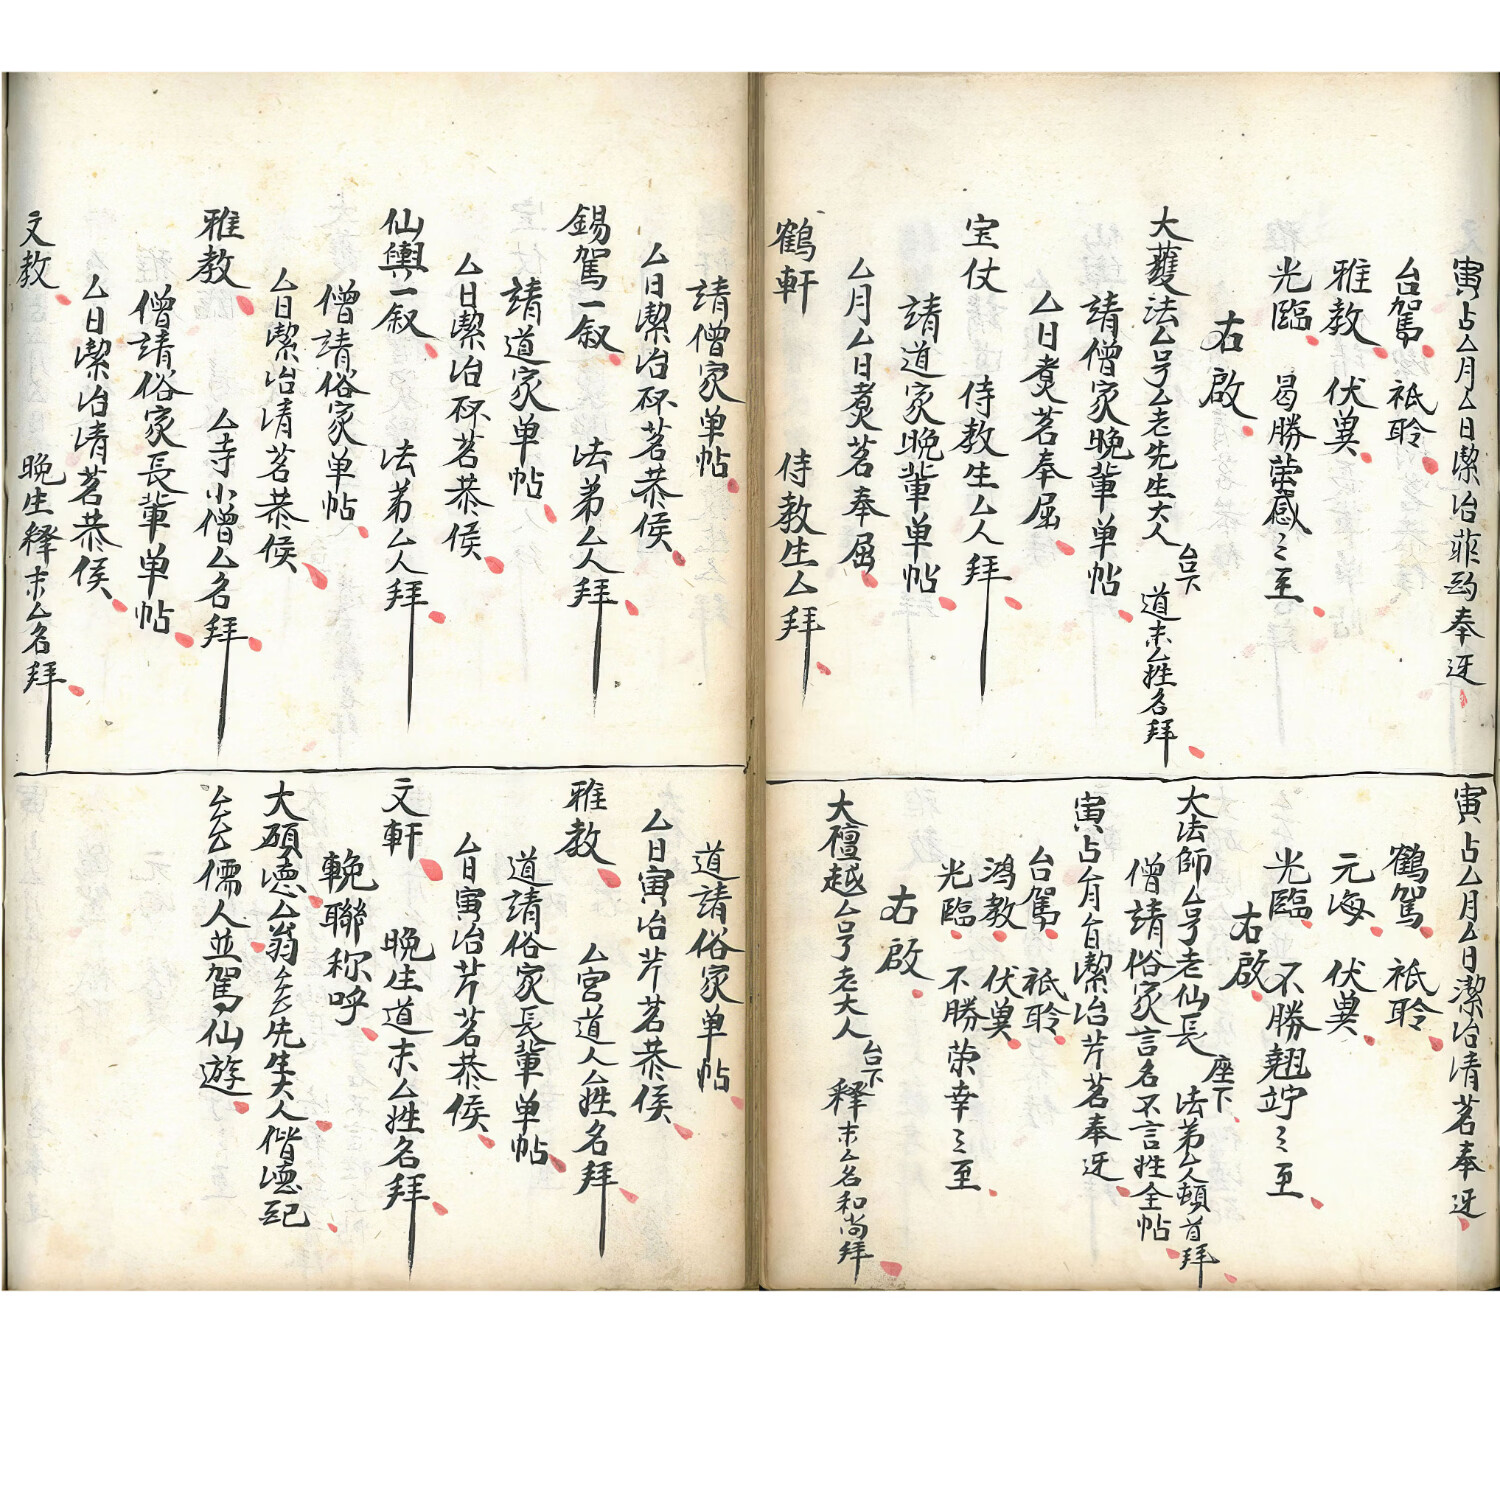 寅占厶月厶日潔治菲酌奉迓
台駕 祇聆
雅教 伏冀
光臨 曷勝荣感之至
右啟
大護法厶号厶老先生大人 台下 道末厶姓名拜
請僧家晚輩单帖
厶日煑茗奉屈
宝仗 侍教生厶人拜
請道家晚輩单帖
厶月厶日煑茗奉屈
鶴軒 侍教生厶拜
寅占厶月厶日潔治清茗奉迓
鶴駕 祇聆
元海 伏冀
光臨 不勝翹竚之至
右啟
大法師厶号老仙長 座下 法弟厶人頓首拜
僧請俗家言名不言姓全帖
寅占厶月厶日潔治芹茗奉迓
台駕 祇聆
鸿教 伏冀
光臨 不勝荣幸之至
右啟
大檀越厶号老大人 台下 释末厶名和尚拜
請僧家单帖
厶日潔治杯茗恭候
錫駕一叙 法弟厶人拜
請道家单帖
厶日潔治杯茗恭候
仙輿一叙 法弟厶人拜
僧請俗家单帖
厶日潔治清茗恭候
雅教 厶寺小僧厶名拜
僧請俗家長輩单帖
厶日潔治清茗恭候
文教 晚生释末厶名拜
道請俗家单帖
厶日寅治芹茗恭候
雅教 厶宫道人厶姓名拜
道請俗家長輩单帖
厶日寅治芹茗恭候
文軒 晚生道末厶姓名拜
輓聯称呼
大碩德厶翁厶厶先生大人偕德配
厶厶儒人並駕仙遊